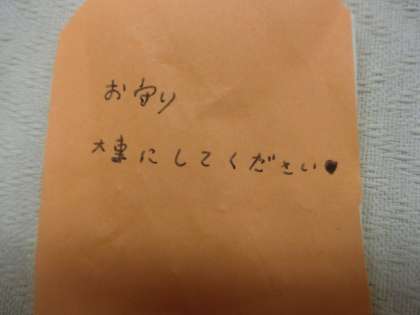 お守り
大事にしてください♥